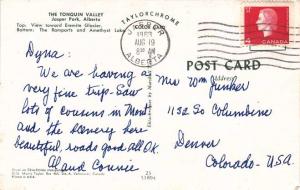 THE TONQUIN VALLEY
Jasper Park, Alberta
Top: View toward Eremite Glacier,
Bottom: The Ramparts and Amethyst Lake
TAYLORCHROME
JASPER
AUG 19
ALBERTA
CANADA
POST CARD
Dyna:
We are having a
very fine trip. Saw
lots of cousins in Mont
and the scenery here
beautiful, roads good. All O.K.
Al and Connie
Mrs Wm Junker
1132 So Columbine
Denver
Colorado - U.S.A.
25